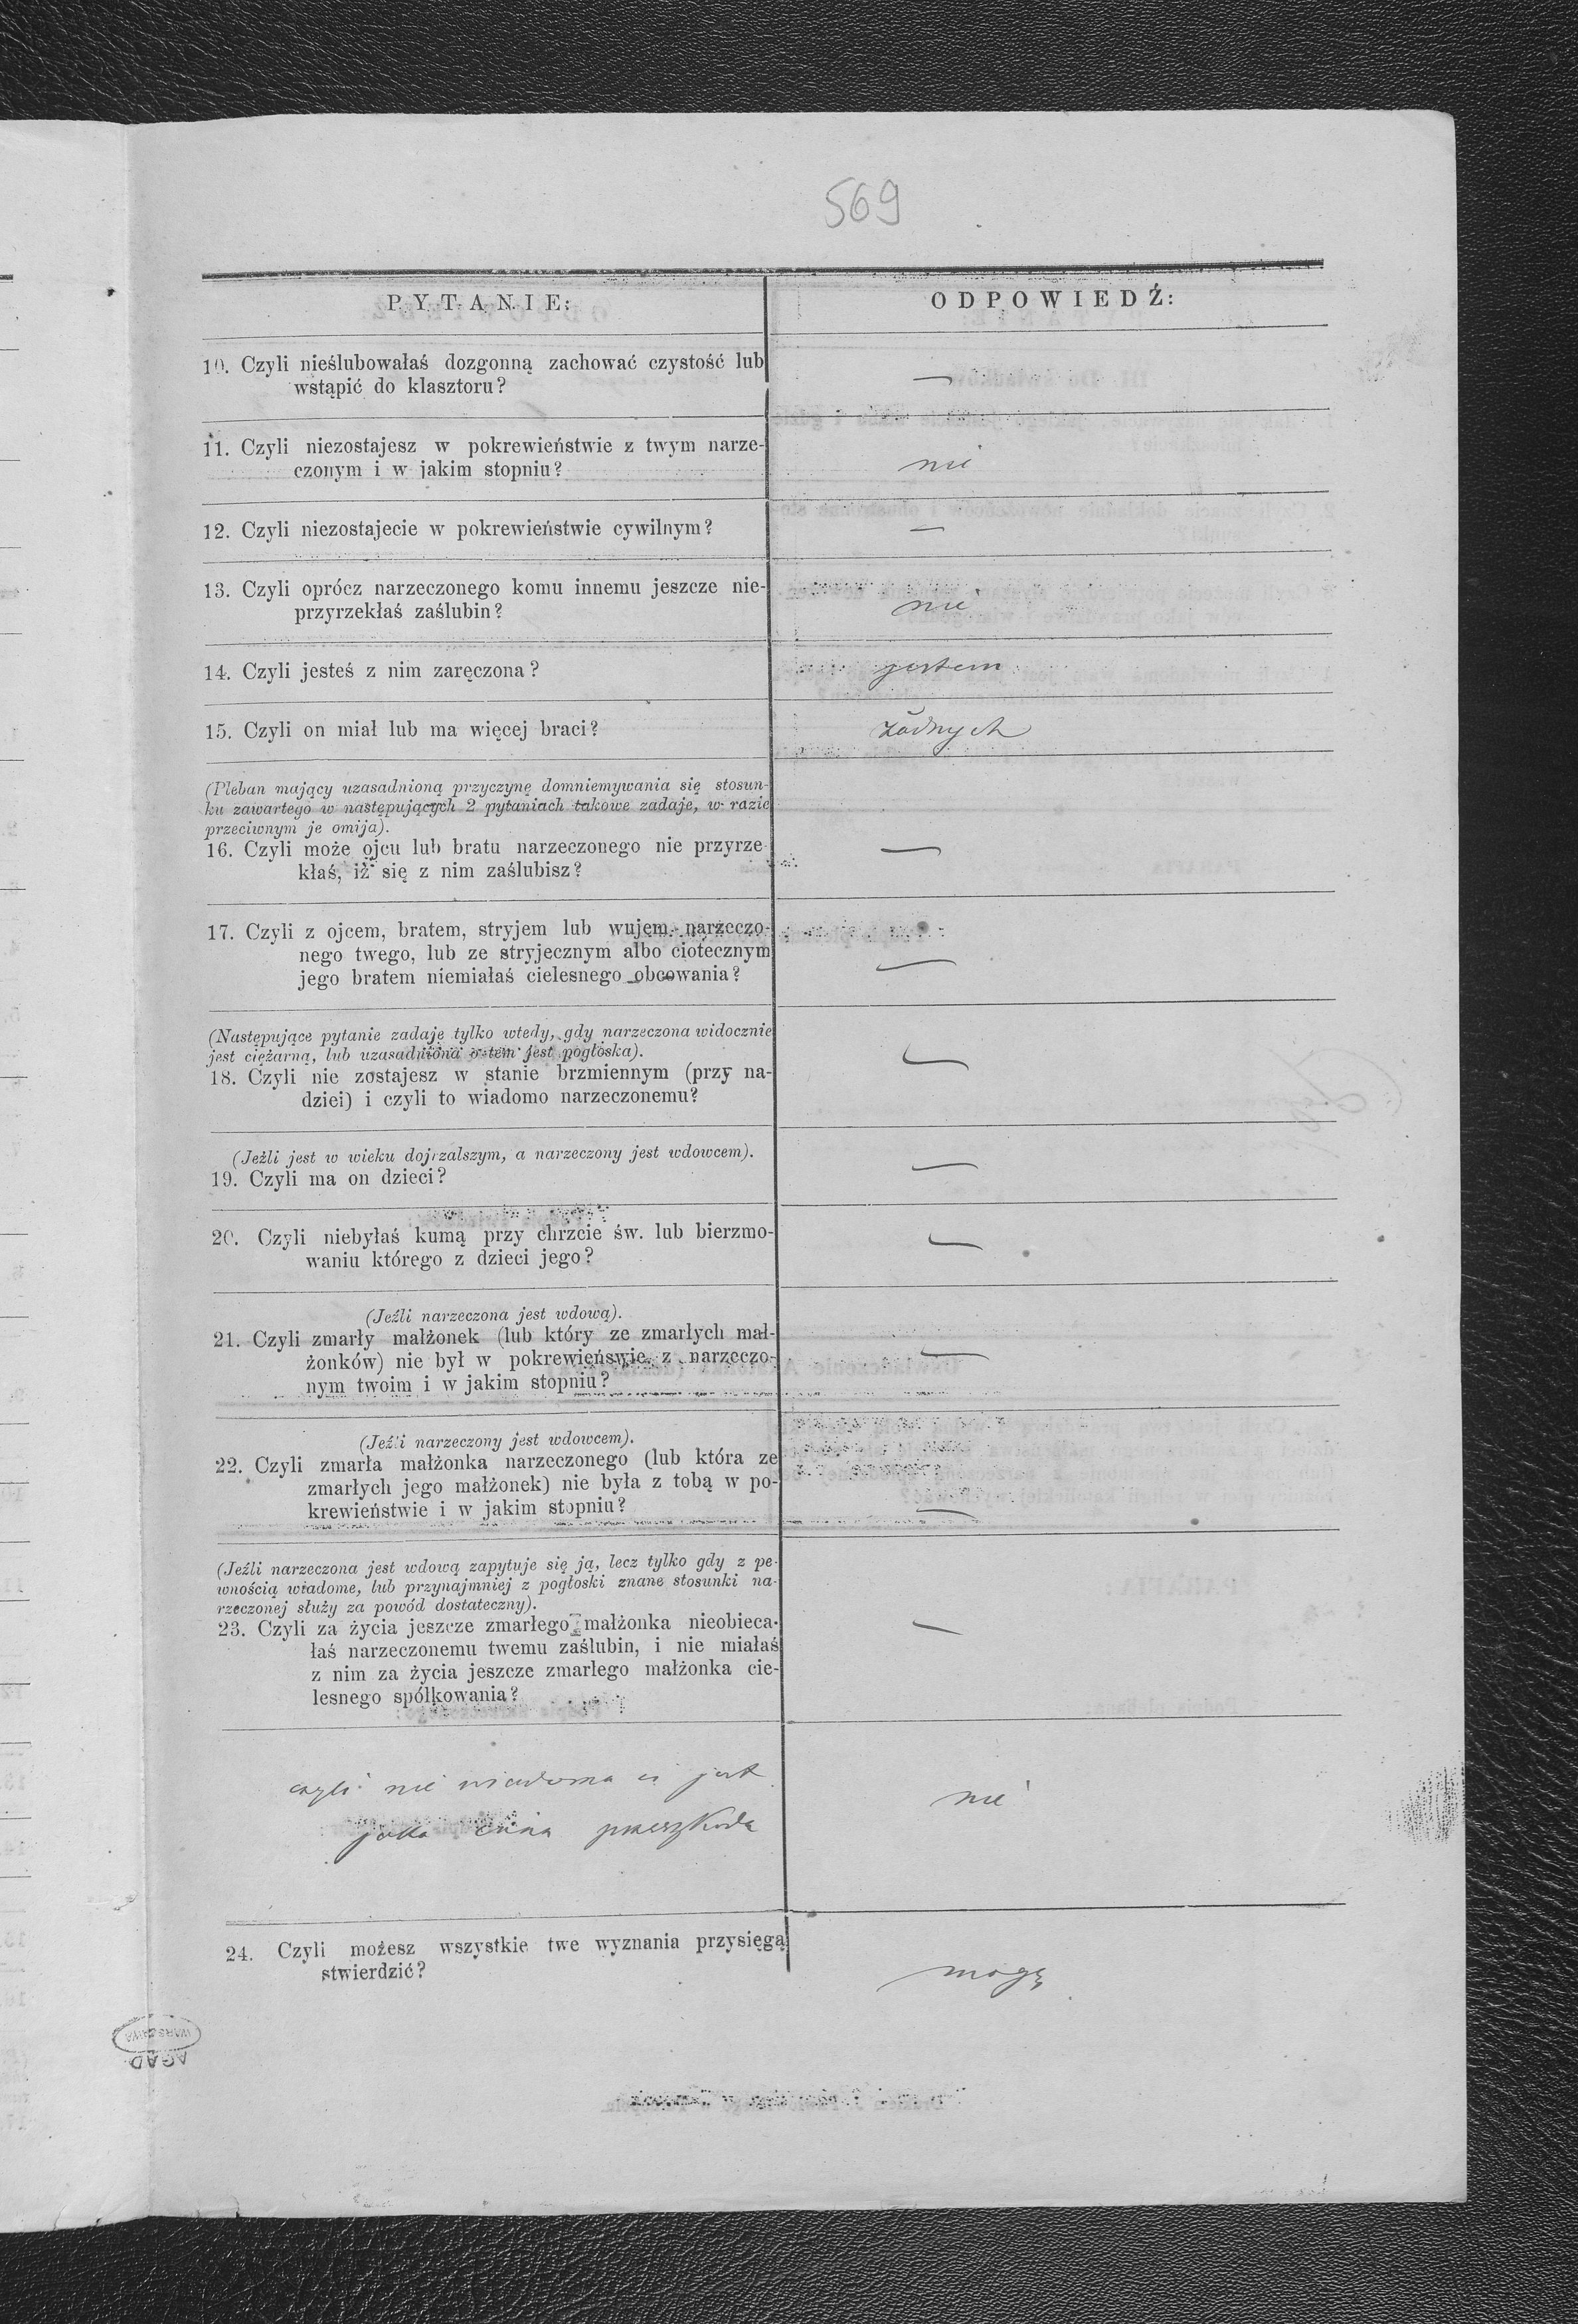 569
PYTANIE:
ODPOWIEDŹ:
10. Czyli nieślubowałaś dozgonną zachować czystość lub
wstąpić do klasztoru?
—
11. Czyli niezostajesz w pokrewieństwie z twym narze-
czonym i w jakim stopniu?
nie
12. Czyli niezostajecie w pokrewieństwie cywilnym?
—
13. Czyli oprócz narzeczonego komu innemu jeszcze nie-
przyrzekłaś zaślubin?
nie
14. Czyli jesteś z nim zaręczona?
jestem
15. Czyli on miał lub ma więcej braci?
żadnych
(Pleban mający uzasadnioną przyczynę domniemywania się stosun-
ku zawartego w następujących 2 pytaniach takowe zadaje, w razie
przeciwnym je omija).
16. Czyli może ojcu lub bratu narzeczonego nie przyrze-
kłaś, iż się z nim zaślubisz?
—
17. Czyli z ojcem, bratem, stryjem lub wujem narzeczo-
nego twego, lub ze stryjecznym albo ciotecznym
jego bratem niemiałaś cielesnego obcowania?
—
(Następujące pytanie zadaje tylko wtedy, gdy narzeczona widocznie
jest ciężarną, lub uzasadniona o tem jest pogłoska).
18. Czyli nie zostajesz w stanie brzmiennym (przy na-
dziei) i czyli to wiadomo narzeczonemu?
—
(Jeźli jest w wieku dojrzalszym, a narzeczony jest wdowcem).
19. Czyli ma on dzieci?
—
20. Czyli niebyłaś kumą przy chrzcie św. lub bierzmo-
waniu którego z dzieci jego?
—
(Jeźli narzeczona jest wdową).
21. Czyli zmarły małżonek (lub który ze zmarłych mał-
żonków) nie był w pokrewieńswie z narzeczo-
nym twoim i w jakim stopniu?
—
(Jeźli narzeczony jest wdowcem).
22. Czyli zmarła małżonka narzeczonego (lub która ze
zmarłych jego małżonek) nie była z tobą w po-
krewieństwie i w jakim stopniu?
—
(Jeźli narzeczona jest wdową zapytuje się ją, lecz tylko gdy z pe-
wnością wiadome, lub przynajmniej z pogłoski znane stosunki na-
rzeczonej służy za powód dostateczny).
23. Czyli za życia jeszcze zmarłego małżonka nieobieca-
łaś narzeczonemu twemu zaślubin, i nie miałaś
z nim za życia jeszcze zmarlego małżonka cie-
lesnego spółkowania?
—
czyli nie wiadoma ci jest
jaka inna przeszkoda
nie
24. Czyli możesz wszystkie twe wyznania przysięgą
stwierdzić?
mogę
WARSZAWA
AGAD